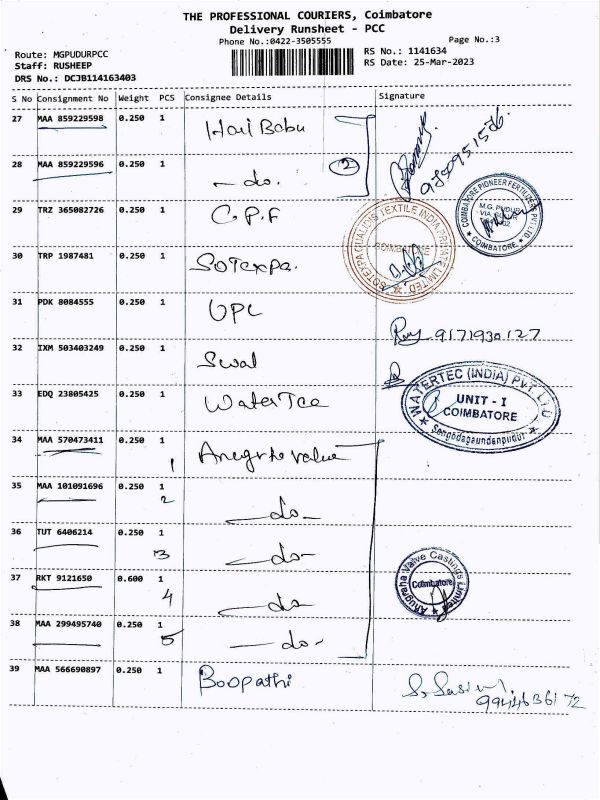 THE PROFESSIONAL COURIERS, Coimbatore
Delivery Runsheet - PCC
Phone No.:0422-3505555
Page No.:3
Route: MGPUDURPCC
Staff: RUSHEEP
DRS No.: DCJB114163403
RS No.: 1141634
RS Date: 25-Mar-2023
S No Consignment No Weight PCS Consignee Details Signature
27 MAA 859229598 0.250 1 Hari Babu
9750951526
28 MAA 859229596 0.250 1 - do. 2
29 TRZ 365082726 0.250 1 C.P.F
COIMBATORE PIONEER FERTILIZERS PVT LTD.
M.G. PUDUR
VIA.
COIMBATORE
30 TRP 1987481 0.250 1 SOTEXPA.
SOTEXPA QUALIDIS TEXTILE INDIA PRIVATE LIMITED
COIMBATORE
31 PDK 8084555 0.250 1 UPL
9171930127
32 IXM 503403249 0.250 1 Swal
33 EDQ 23805425 0.250 1 WaterTec
WATERTEC (INDIA) PVT. LTD
UNIT - I
COIMBATORE
Sengodagaundanpudur
34 MAA 570473411 0.250 1 1 Anugrha value
35 MAA 101091696 0.250 1 2 - do -
36 TUT 6406214 0.250 1 3 - do -
37 RKT 9121650 0.600 1 4 - do
Anugraha Valve Castings Limited
Coimbatore
38 MAA 299495740 0.250 1 5 - do -
39 MAA 566690897 0.250 1 Boopathi
9944636172